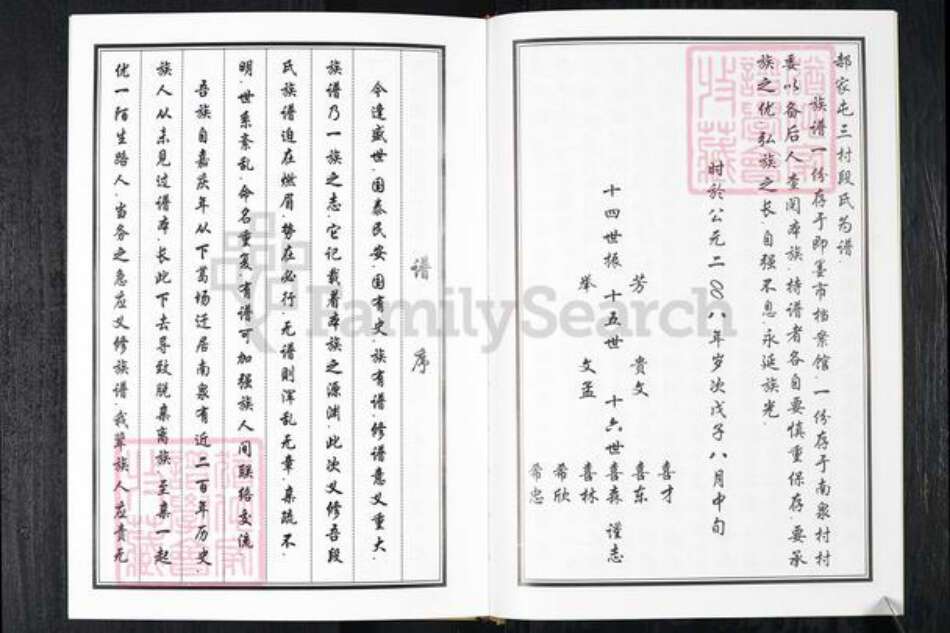 郝家屯三村段氏为谱
族谱一份存于即墨市档案馆.一份存于南泉村村
委以备后人查阅本族.持谱者各自要慎重保存.要承
族之优弘族之长自强不息.永延族光.
时於公元二〇〇八年岁次戊子八月中旬
十四世振 芳 举 十五世 贵文 文孟 十六世 喜才 喜东 喜森 喜林 希欣 希忠 谨志
谱序
今逢盛世.国泰民安.国有史.族有谱.修谱意义重大.
族谱乃一族之志.它记载着本族之源渊.此次义修吾段
氏族谱迫在燃眉.势在必行.无谱则浑乱无章.亲疏不
明.世系紊乱.命名重复.有谱可加强族人间联络交流
吾族自嘉庆年从下葛场迁居南泉有近二百年历史.
族人从未见过谱本.长此下去导致脱亲离族.至亲一起
优一陌生路人.当务之急应义修族谱.我辈族人应责无
FamilySearch